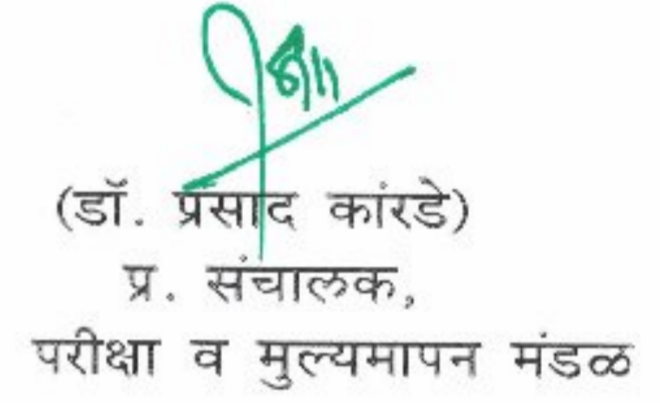 8/11
(डॉ. प्रसाद कांरडे)
प्र. संचालक,
परीक्षा व मुल्यमापन मंडळ